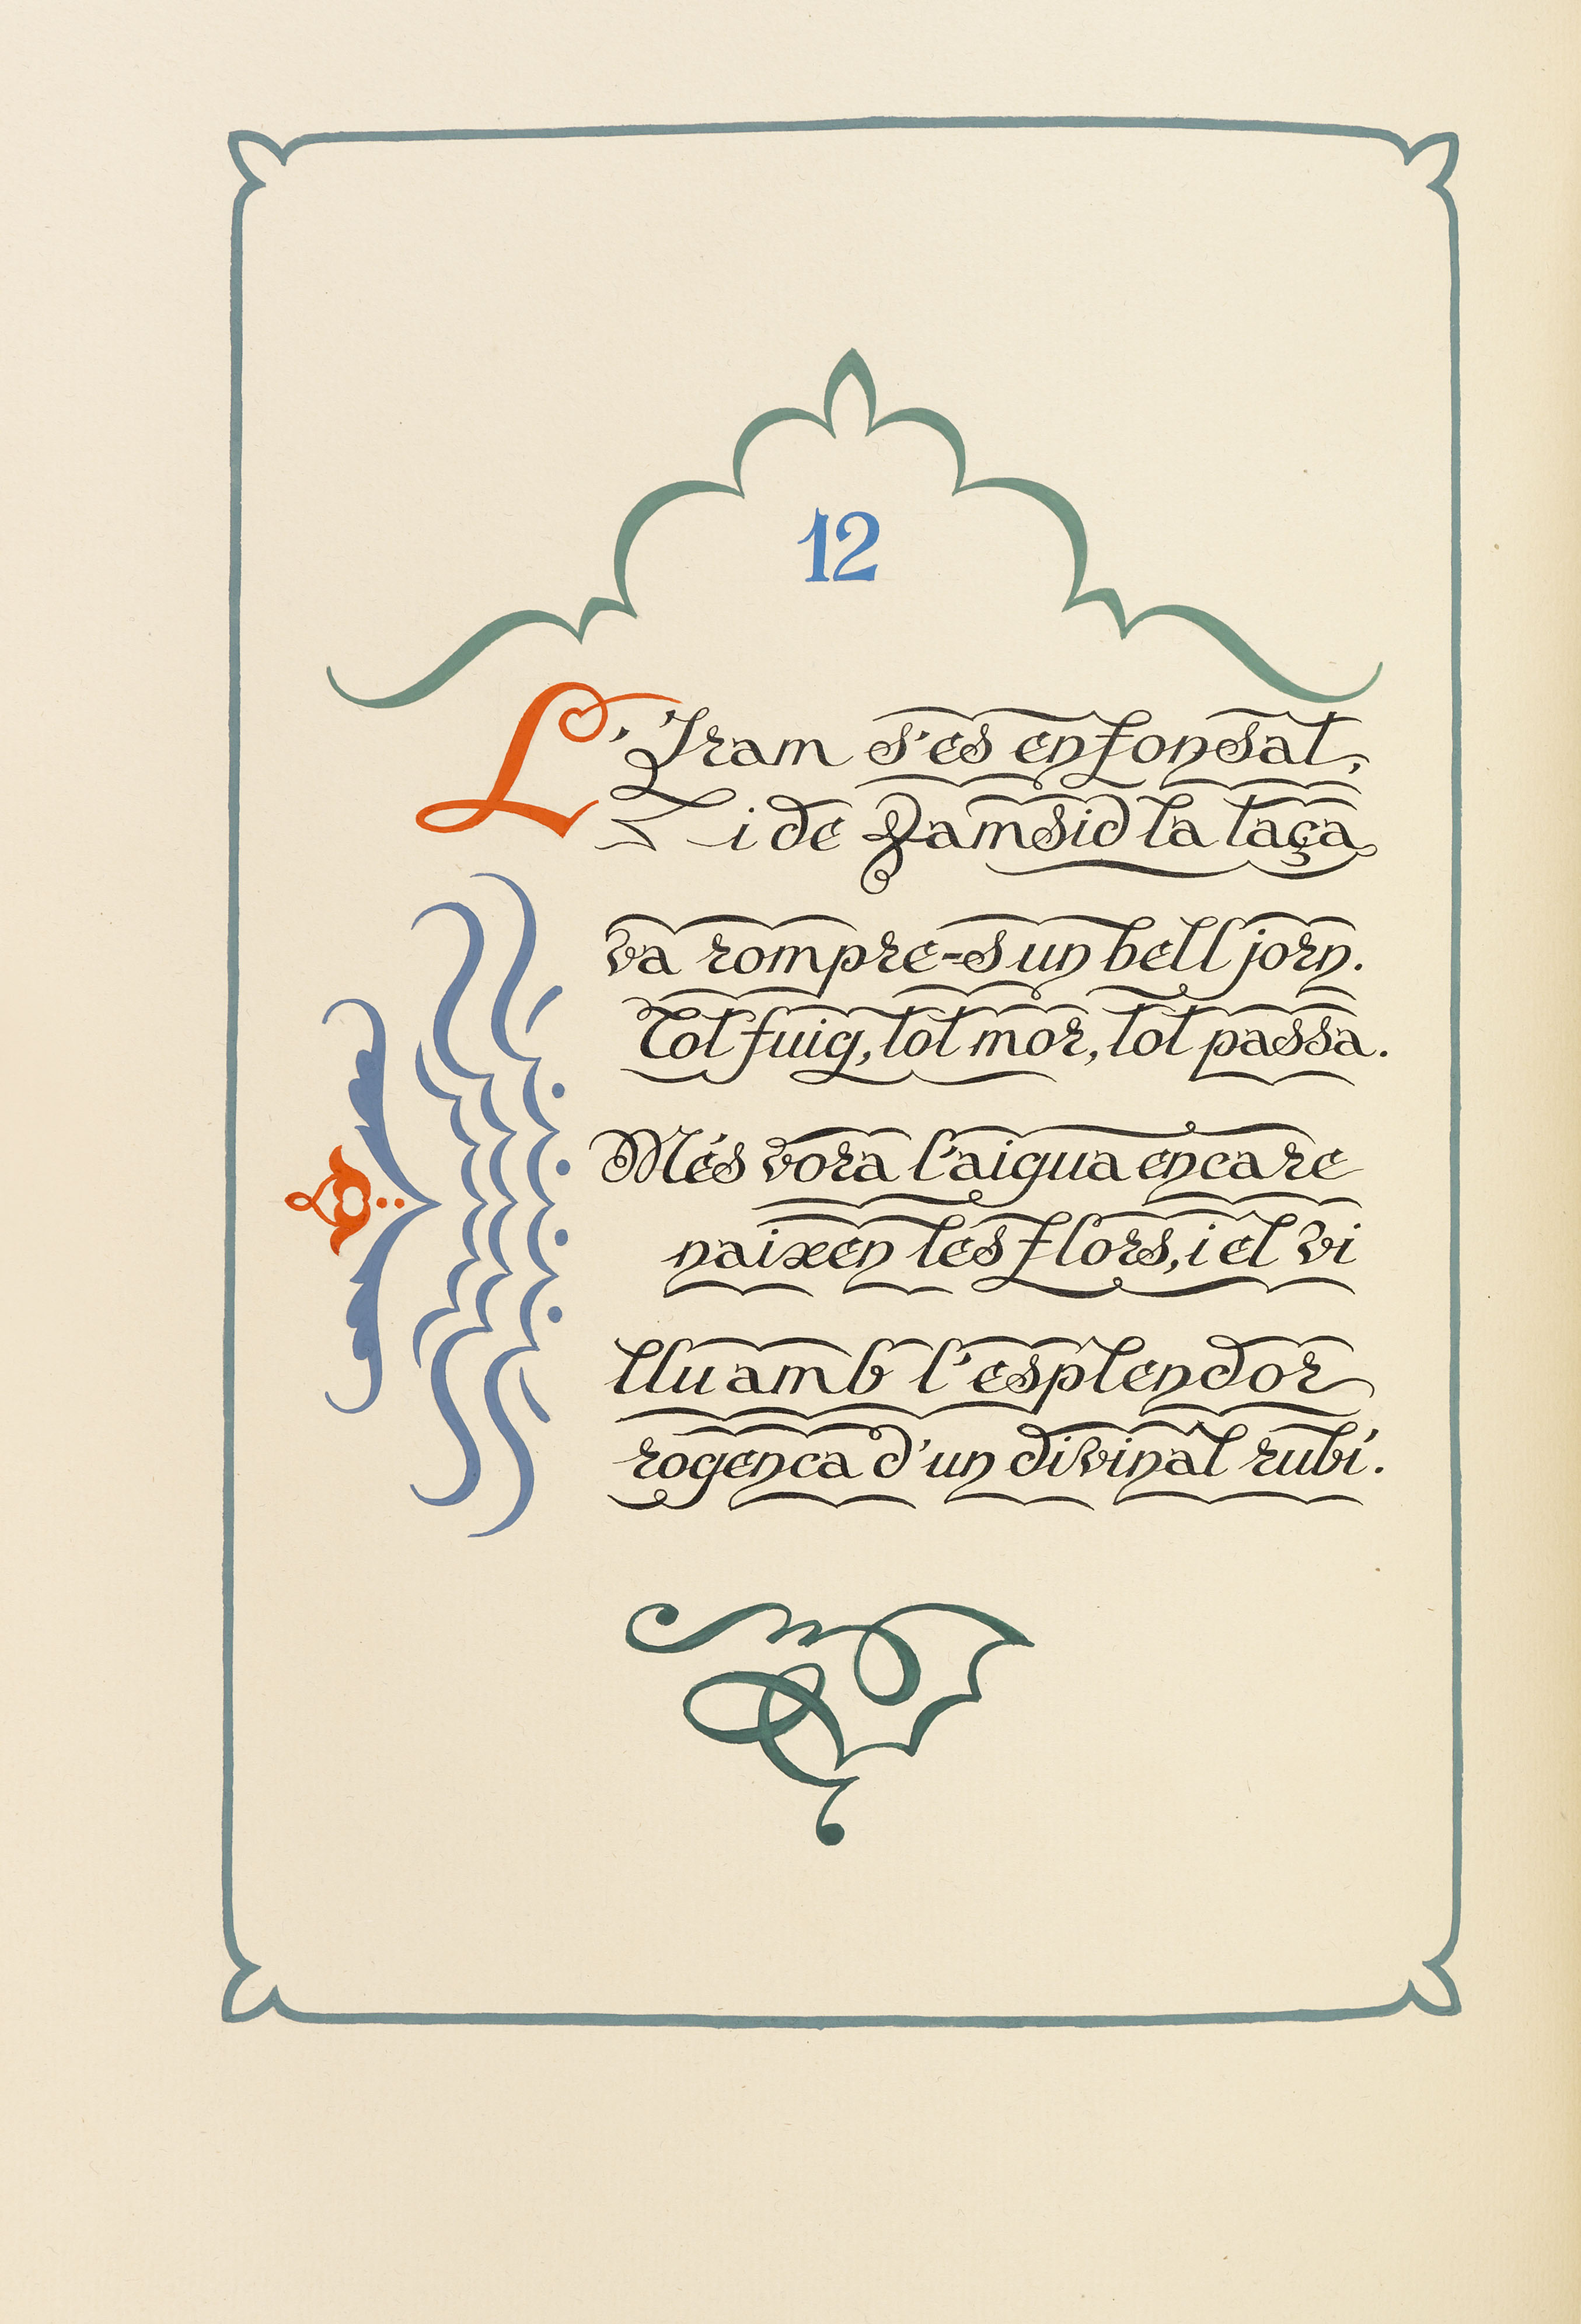 12
L'Iram s'es enfonsat,
i de Zamsid la taça
va rompre-s un bell jorn.
Tot fuig, tot mor, tot passa.
Més vora l'aigua encare
naixen les flors, i el vi
llu amb l'esplendor
rogenca d'un divinal rubí.